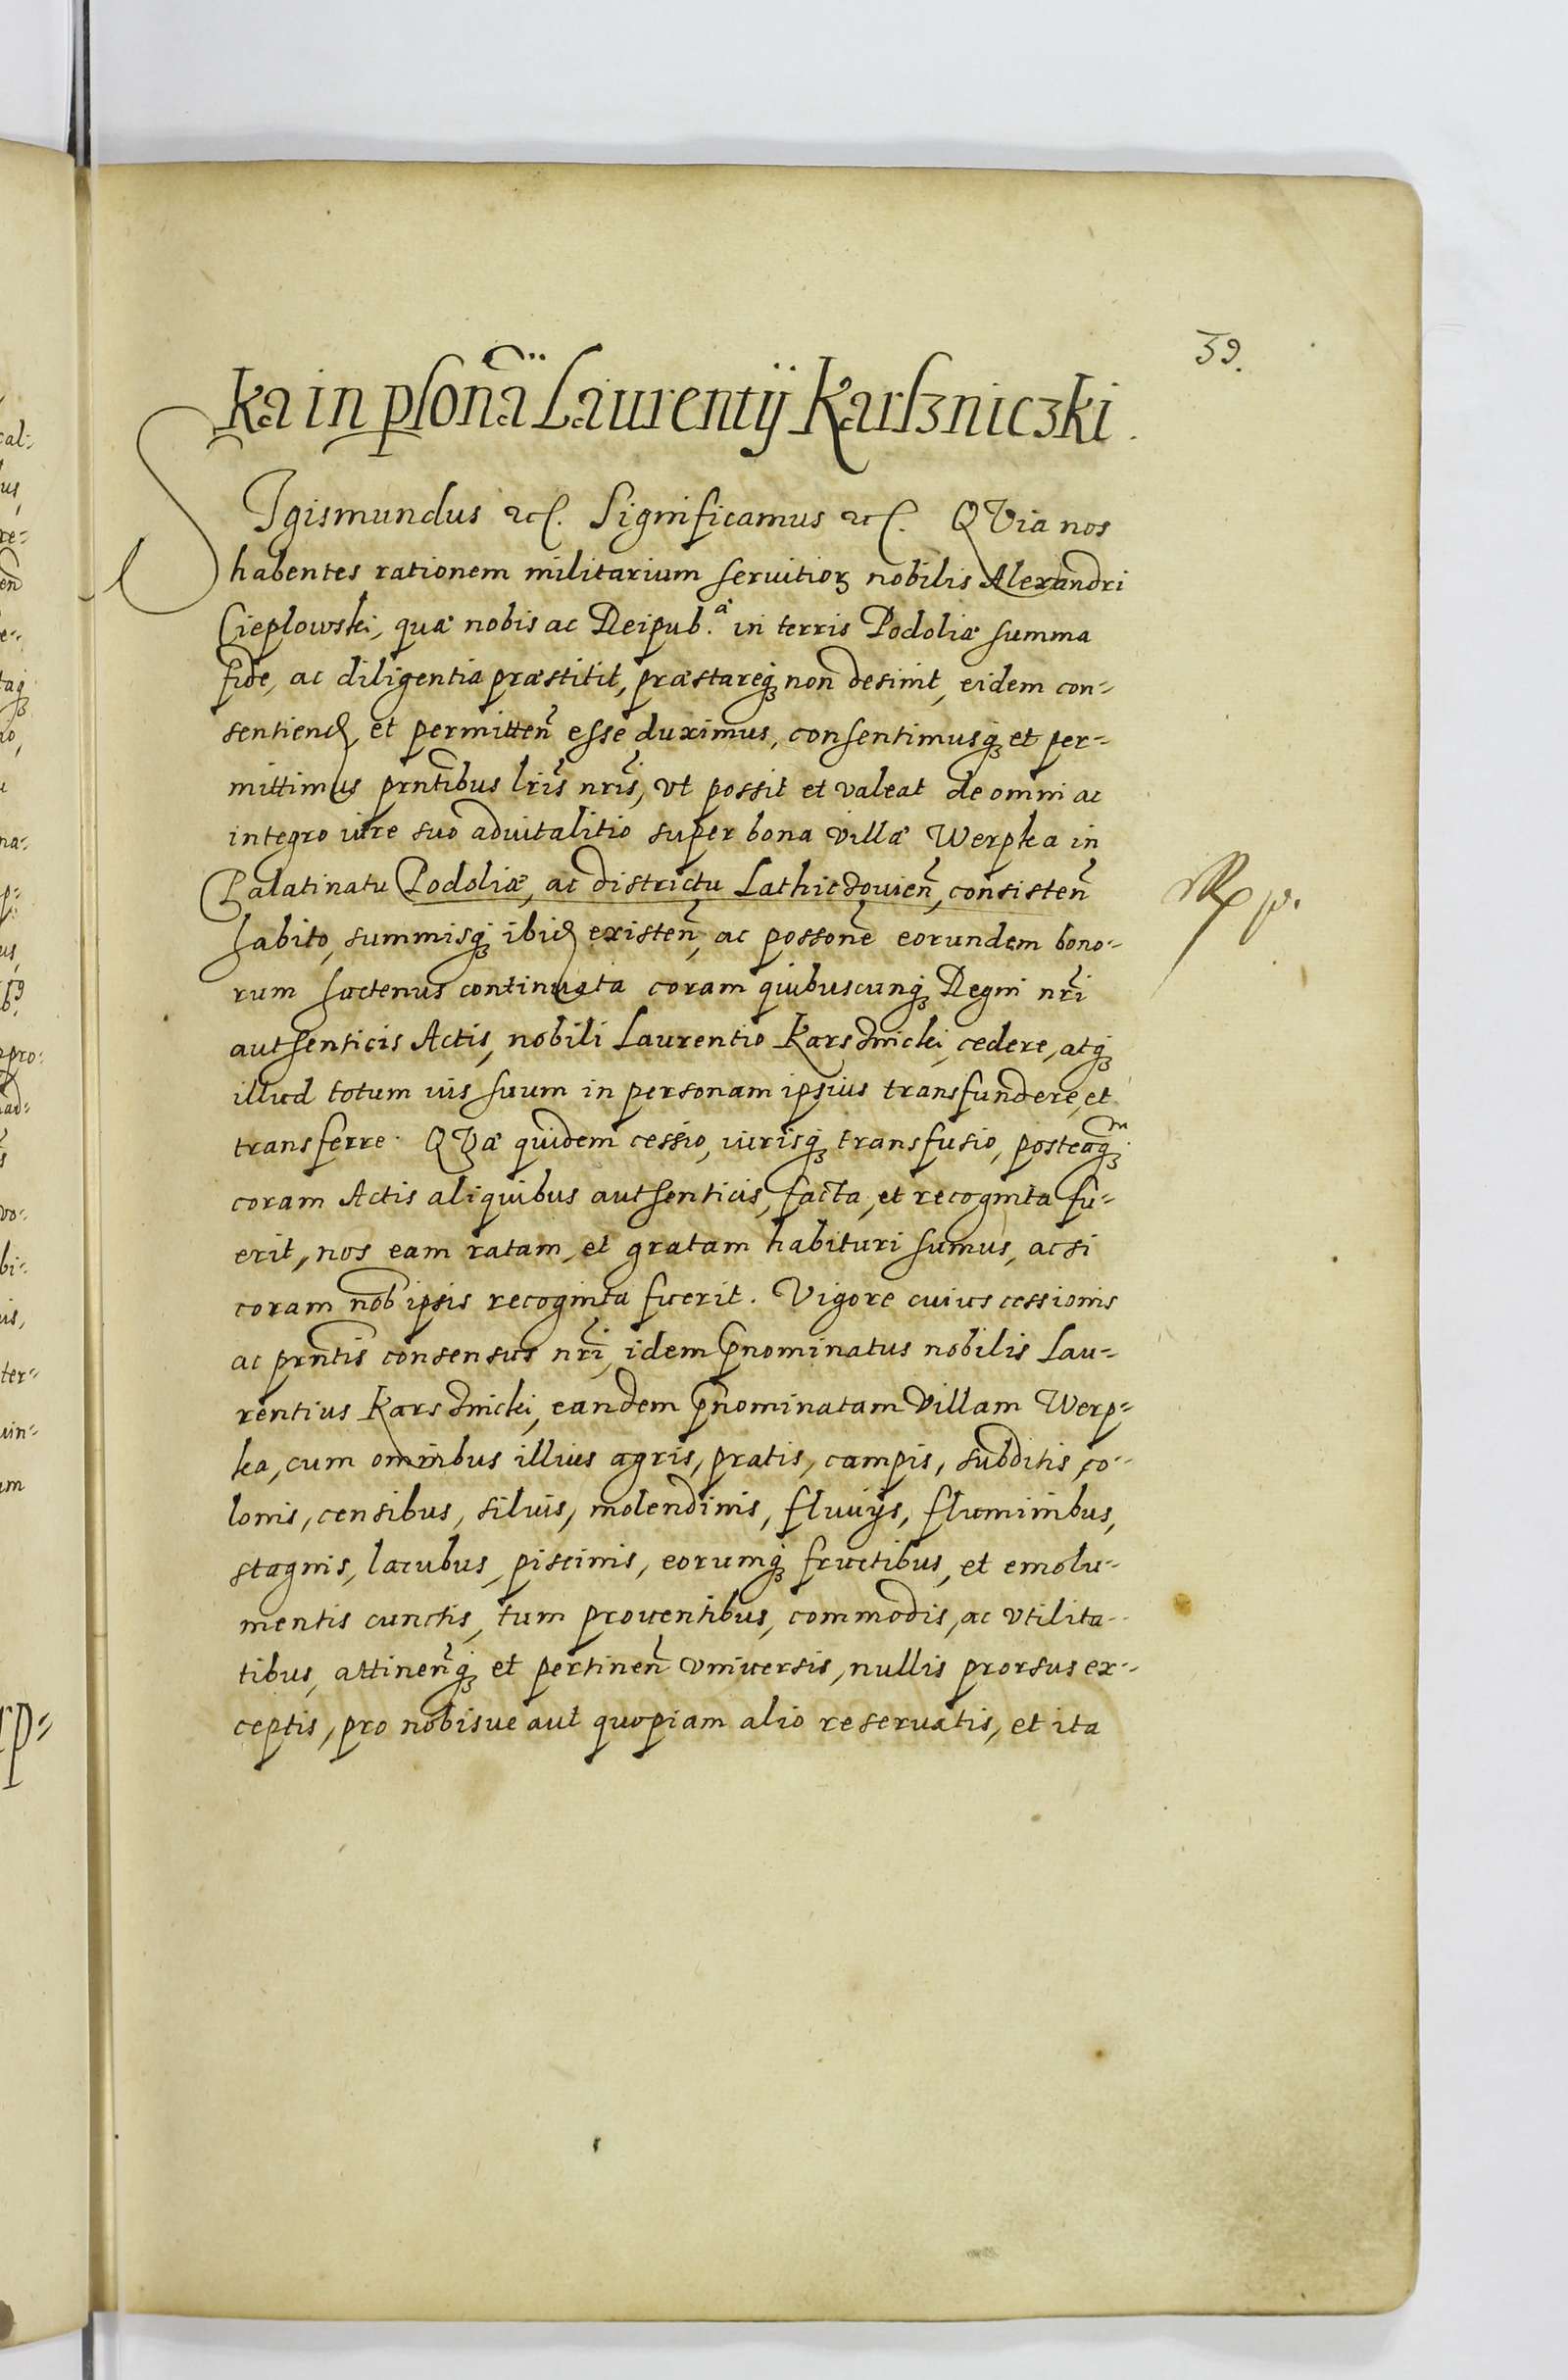 39.
ka in psonã Laurentij Karſzniczki.
SIgismundus etc. Significamus etc. QVia nos
habentes rationem militarium seruitioꝝ nobilis Alexandri
Cieplowski, quæ nobis ac Reipub.ᵃᵉ in terris Podoliæ summa
fide, ac diligentia præstitit, præstareqꝫ non desinit, eidem con-
sentiend, et permitteñ esse duximus, consentimusqꝫ et per-
mittimus prñtibus lris nris, vt possit et valeat de omni ac
integro iure suo aduitalitio super bona villæ Werpka in
Palatinatu Podoliæ, ac districtu Lathiczouieñ, consisteñ
habito, summisqꝫ ibid existeñ, ac possone eorundem bono-
rum hactenus continuata coram quibuscunqꝫ Regni nri
authenticis Actis, nobili Laurentio Karsznicki, cedere, atqꝫ
illud totum ius suum in personam ipsius transfundere, et
transferre. QVæ quidem cessio, iurisqꝫ transfusio, posteaqꝫᵐ
coram Actis aliquibus authenticis, facta, et recognita fu-
erit, nos eam ratam, et gratam habituri sumus, ac si
coram nob ipsis recognita fuerit. Vigore cuius cessionis
ac prñtis consensus nri, idem p̃nominatus nobilis Lau-
rentius Karsznicki, eandem p̃nominatam Villam Werp-
ka, cum omnibus illius agris, pratis, campis, subditis, co-
lonis, censibus, siluis, molendinis, fluuijs, fluminibus,
stagnis, lacubus, piscinis, eorumqꝫ fructibus, et emolu-
mentis cunctis, tum prouentibus, commodis, ac vtilita-
tibus, attineñqꝫ et pertineñ vniuersis, nullis prorsus ex-
ceptis, pro nobisue aut quopiam alio reseruatis, et ita